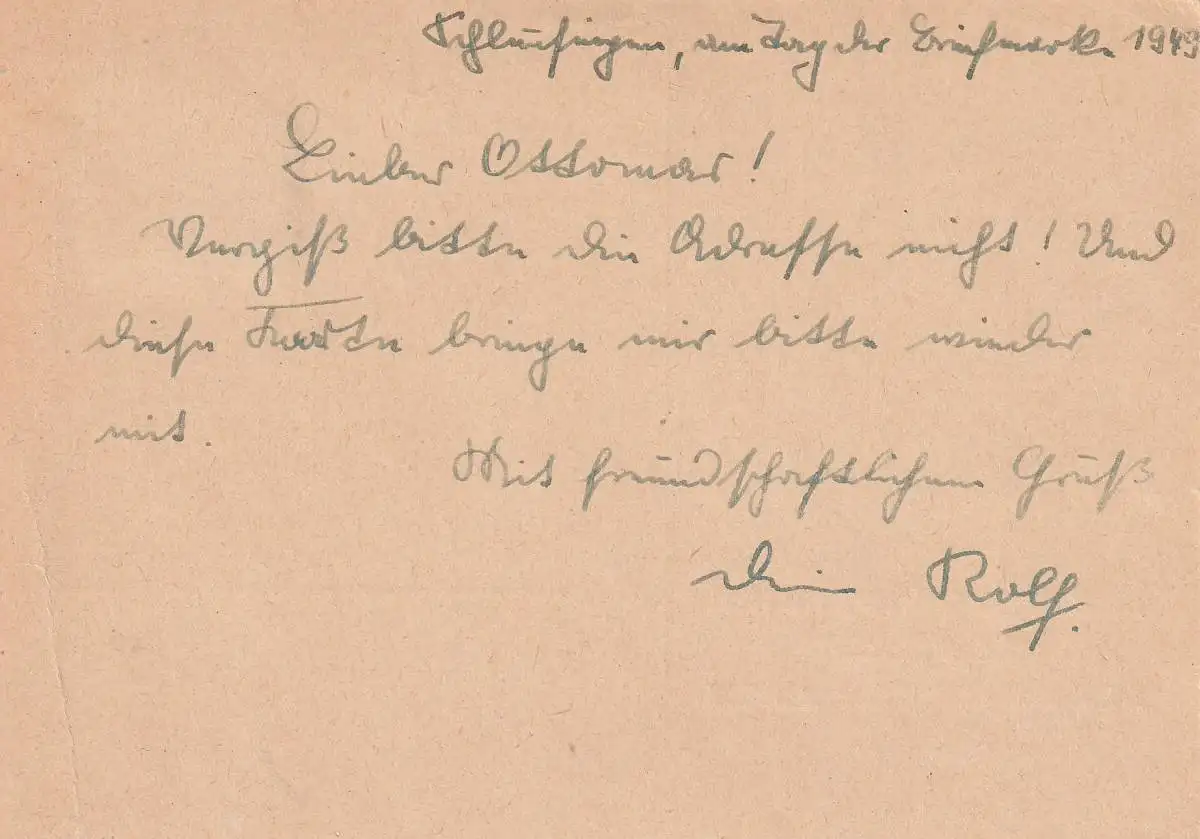 Schleusingen, am Tag der Briefmarke 1949
Lieber Ottomar!
Vergiß bitte die Adresse nicht! Und
diese Karte bringe mir bitte wieder
mit.
Mit freundschaftlichem Gruß
Dein Rolf.